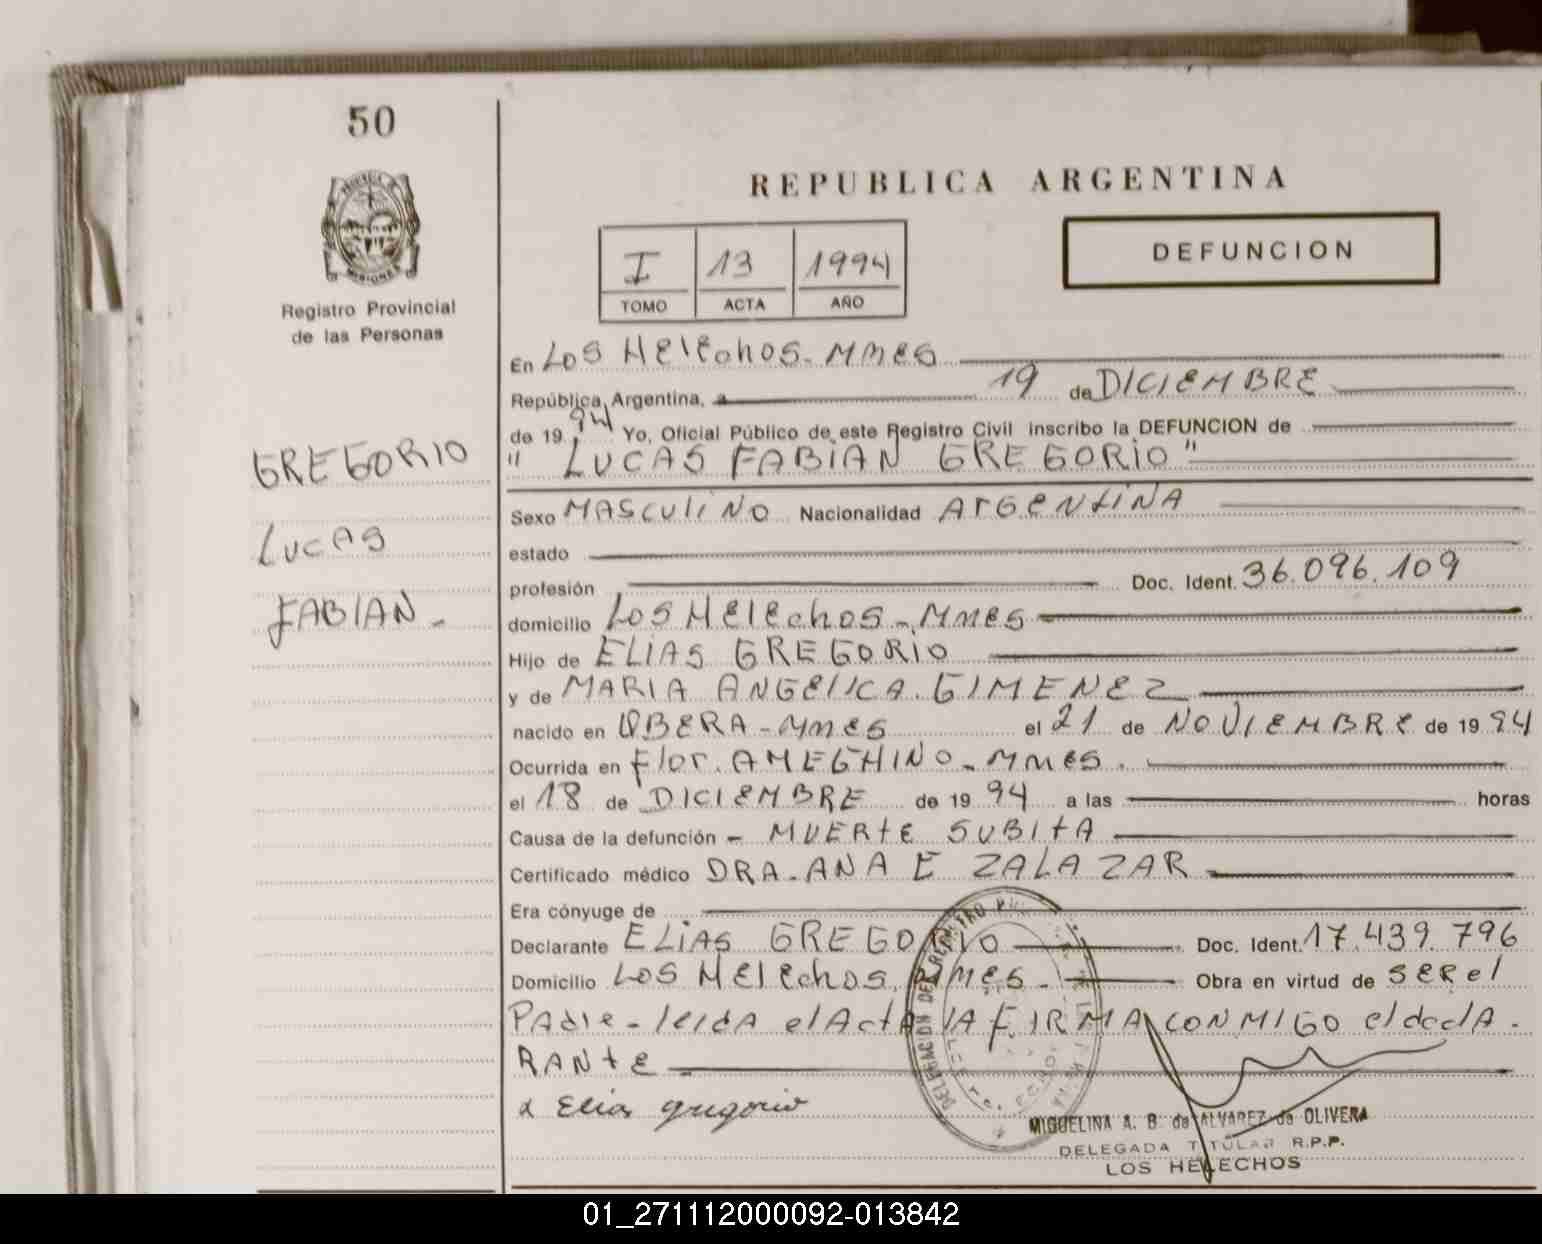 50
Registro Provincial
de las Personas
GREGORIO
LUCAS
FABIAN.-
REPUBLICA ARGENTINA
I 13 1994
TOMO ACTA AÑO
DEFUNCION
En Los Helechos - Mnes
República Argentina, a 19 de DICIEMBRE
de 19 94 Yo, Oficial Público de este Registro Civil inscribo la DEFUNCION de
" LUCAS FABIAN GREGORIO "
Sexo MASCULINO Nacionalidad ARGENTINA
estado
profesión Doc. Ident. 36.096.109
domicilio Los Helechos - Mnes
Hijo de ELIAS GREGORIO
y de MARIA ANGELICA GIMENEZ
nacido en OBERA - Mnes el 21 de NOVIEMBRE de 19 94
Ocurrida en Flor. AMEGHINO - Mnes.
el 18 de DICIEMBRE de 19 94 a las horas
Causa de la defunción - MUERTE SUBITA
Certificado médico DRA. ANA E ZALAZAR
Era cónyuge de
Declarante ELIAS GREGORIO Doc. Ident. 17.439.796
Domicilio Los Helechos, Mnes - Obra en virtud de SER el
PAdre - leida el ActA lA FIRMA CONMIGO el declA-
RANte
x Elias gregorio
MIGUELINA A. B. de ALVAREZ de OLIVERA
DELEGADA TITULAR R.P.P.
LOS HELECHOS
01_271112000092-013842